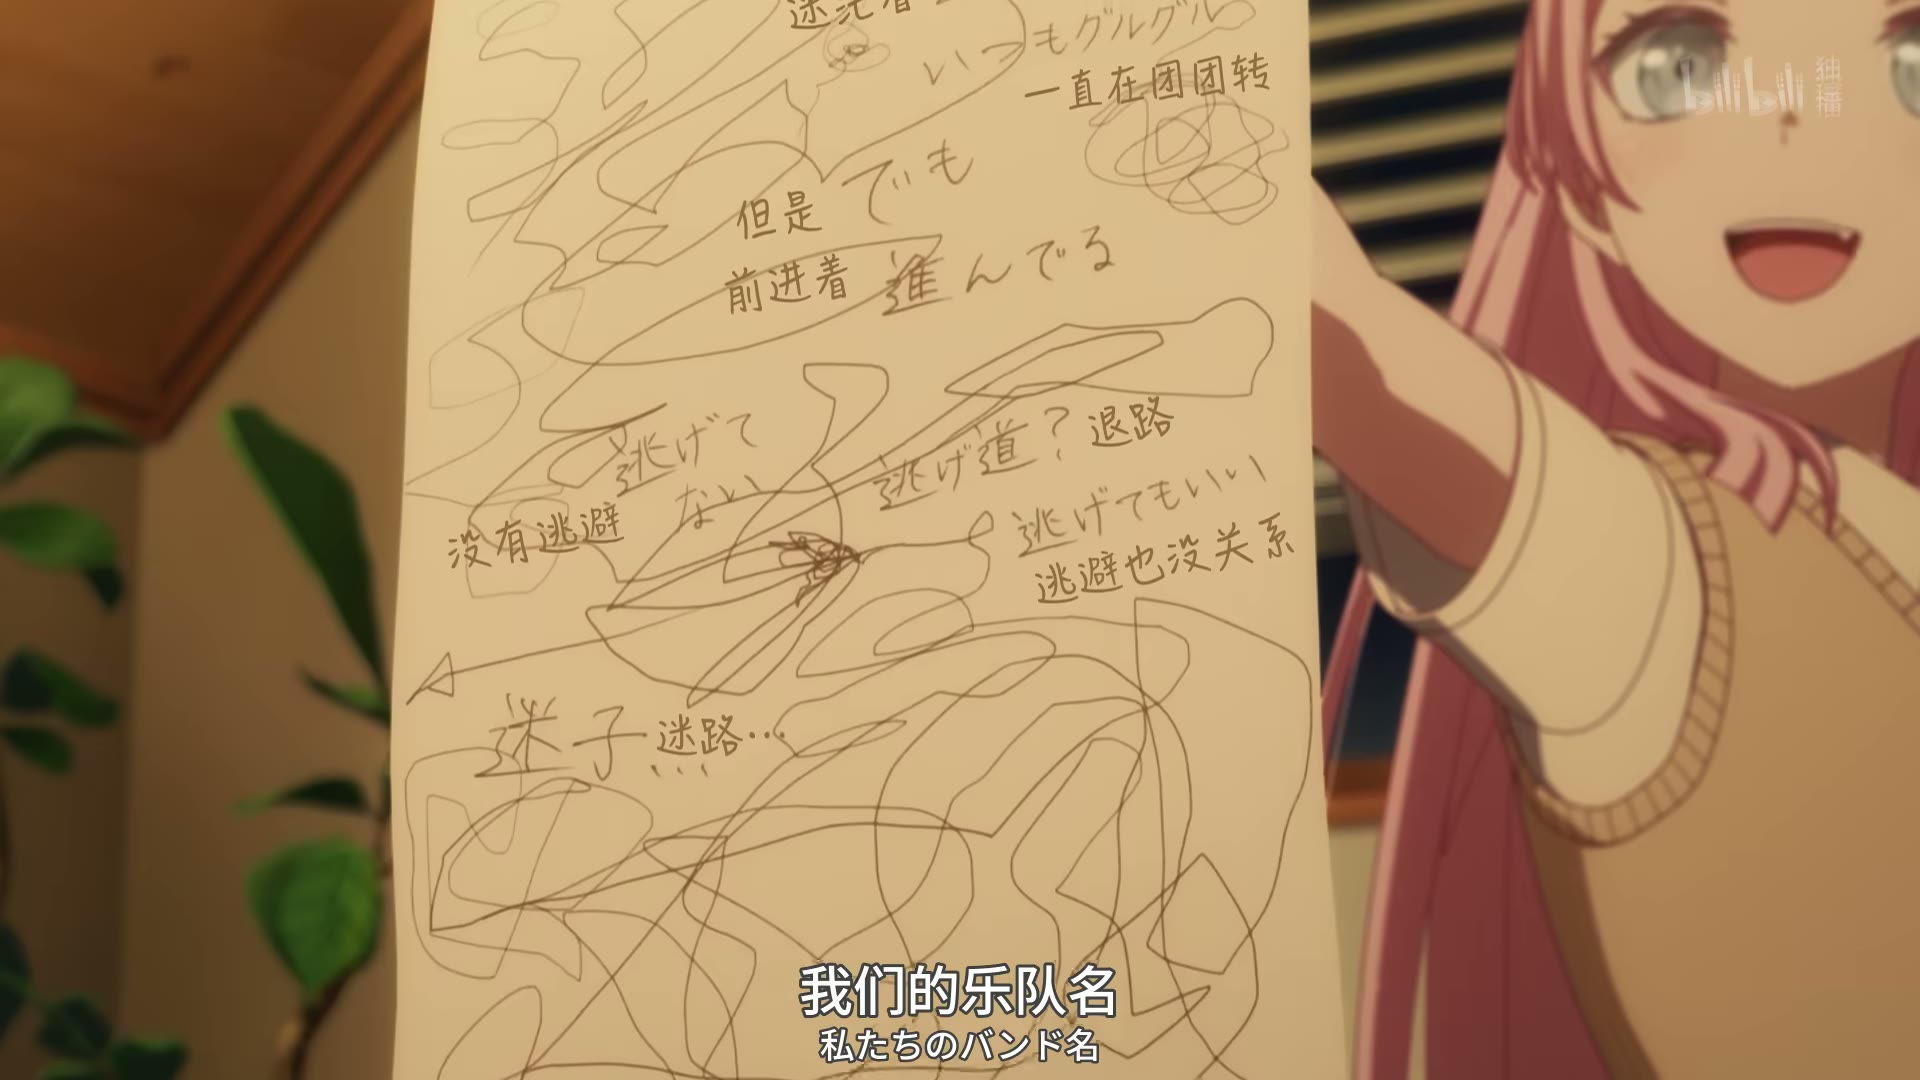 迷茫着
いつもグルグル
一直在团团转
bilibili 独播
但是 でも
前进着 進んでる
逃げて
ない
没有逃避
逃げ道？ 退路
逃げてもいい
逃避也没关系
迷子 迷路…
我们的乐队名
私たちのバンド名